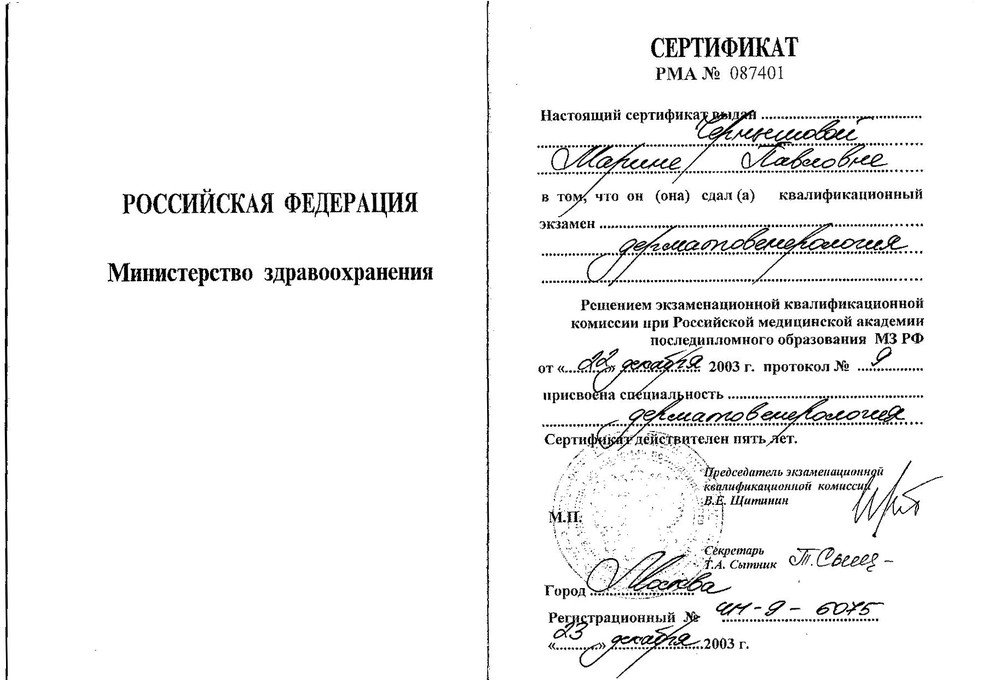 РОССИЙСКАЯ ФЕДЕРАЦИЯ
Министерство здравоохранения
СЕРТИФИКАТ
РМА № 087401
Настоящий сертификат выдан
Чернышовой
Марине Павловне
в том, что он (она) сдал (а) квалификационный
экзамен
дерматовенерология
Решением экзаменационной квалификационной
комиссии при Российской медицинской академии
последипломного образования МЗ РФ
от «22» декабря 2003 г. протокол № 9
присвоена специальность
дерматовенерология
Сертификат действителен пять лет.
Председатель экзаменационной
квалификационной комиссии
В.Е. Щитинин
М.П.
Секретарь
Т.А. Сытник
Город Москва
Регистрационный № ЧН-9-6075
«23» декабря 2003 г.